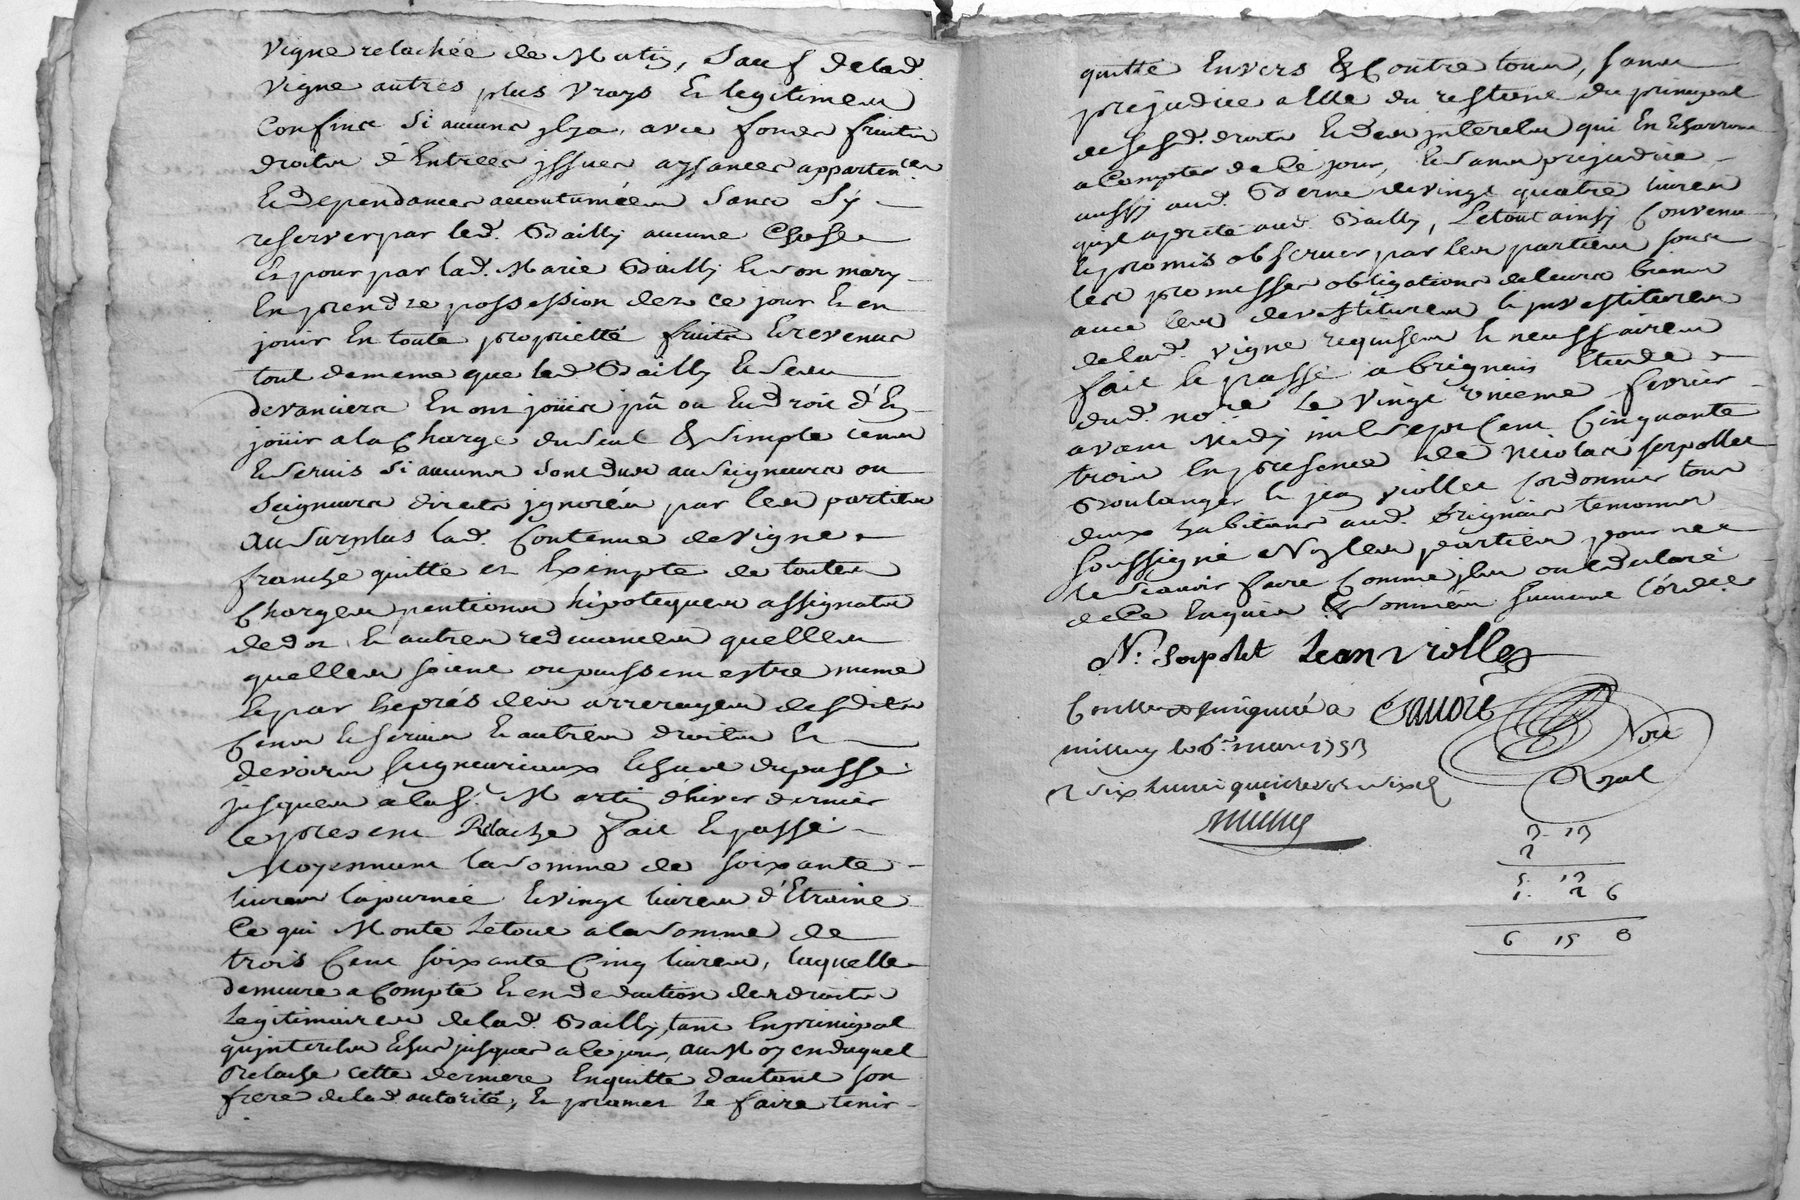 vigne relachée de Matin, Sauf de lad.
vigne autres plus vrays & legitimes
Confins si aucuns jlya, avec fonds fruits
droits d'Entrées jssues aysances appartences
Et dependances accoutumées Sans s'y
reserver par led. Bailly aucune Chose
Et pour par lad. Marie Bailly & son mary
En prendre possession dez ce jour & en
jouir En toute proprietté fruits & revenus
tout de meme que led Bailly & Ses
devanciers En ont joüis pû ou Eu droit d'En
joüir a la Charge du Seul & Simple Cens
& Servis Si aucuns sont dus au Seigneurs ou
Seigneurs directs jgnorés par les parties
Au Surplus lad. Contenue de vigne
franche quitte et Exempte de toutes
Charges pentions hipoteques assignats
de dot & autres redevances quelles
quelles soient ou puissent estre meme
& par Exprés des arrerages desdits
Cens & servis & autres droits &
devoirs Seigneuriaux Echus du passé
jusques a la St. Martin d'hiver dernier
le present Relache fait & passé
Moyennant la Somme de soixante
livres la journée & vingt livres d'Etraine
Ce qui Monte Le tout a la Somme de
trois Cent soixante Cinq livres, laquelle
demeure a Compte & en deduction des droits
Legitimaires de lad. Bailly, tant En principal
qu'jnterets Echus jusques a ce jour, au Moyen duquel
Relache cette derniere En quitte d'autant son
frere de lad. autorité, & promet Le faire tenir
quitte Envers & Contre tous, sans
prejudice a Elle du restant du principal
de Sesd. droits & des jnterets qui En Echerront
a Compter de ce jour, & Sans prejudice
aussy aud. de vingt quatre livres
qu'il a preté aud. Bailly, Le tout ainsy Convenu
& promis observer par les parties sous
les promesses obligations de leurs biens
avec les devestitures & jnvestitures
de lad. vigne requises & necessaires
fait & passé a Brignais Etude
dud. nore. Le vingt vnieme fevrier
avant Midy mil Sept Cent Cinquante
trois En presence de Nicolas Serpollet
Boulanger & jean viollet Cordonnier tous
deux habitans aud. Brignais temoins
soussignés Non les parties pour ne
le Scavoir faire Comme jls ont declaré
de Ce Enquis & Sommés suivant l'órdce
N. Serpolet Jean violley
Contro
millery le 6e. mars 1753
Nore
Royal
6 15